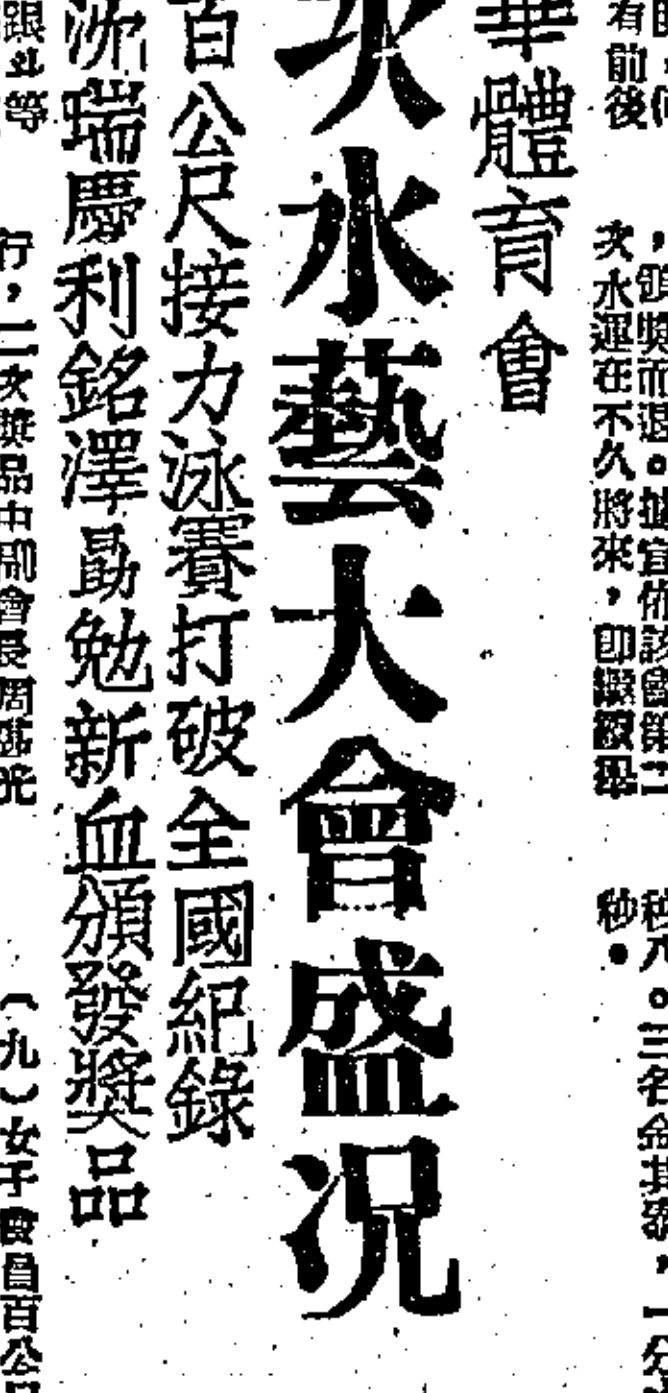 有前後
，頒獎而退。據宣佈該會第二
次水運在不久將來，即繼續舉
秒八。三名金其發，一分
秒。
華體育會
次水藝大會盛況
百公尺接力泳賽打破全國紀錄
沈瑞慶利銘澤勗勉新血頒發獎品
跟斗等
行，二次獎品由副會長周
光
（九）女子賓昌百公尺